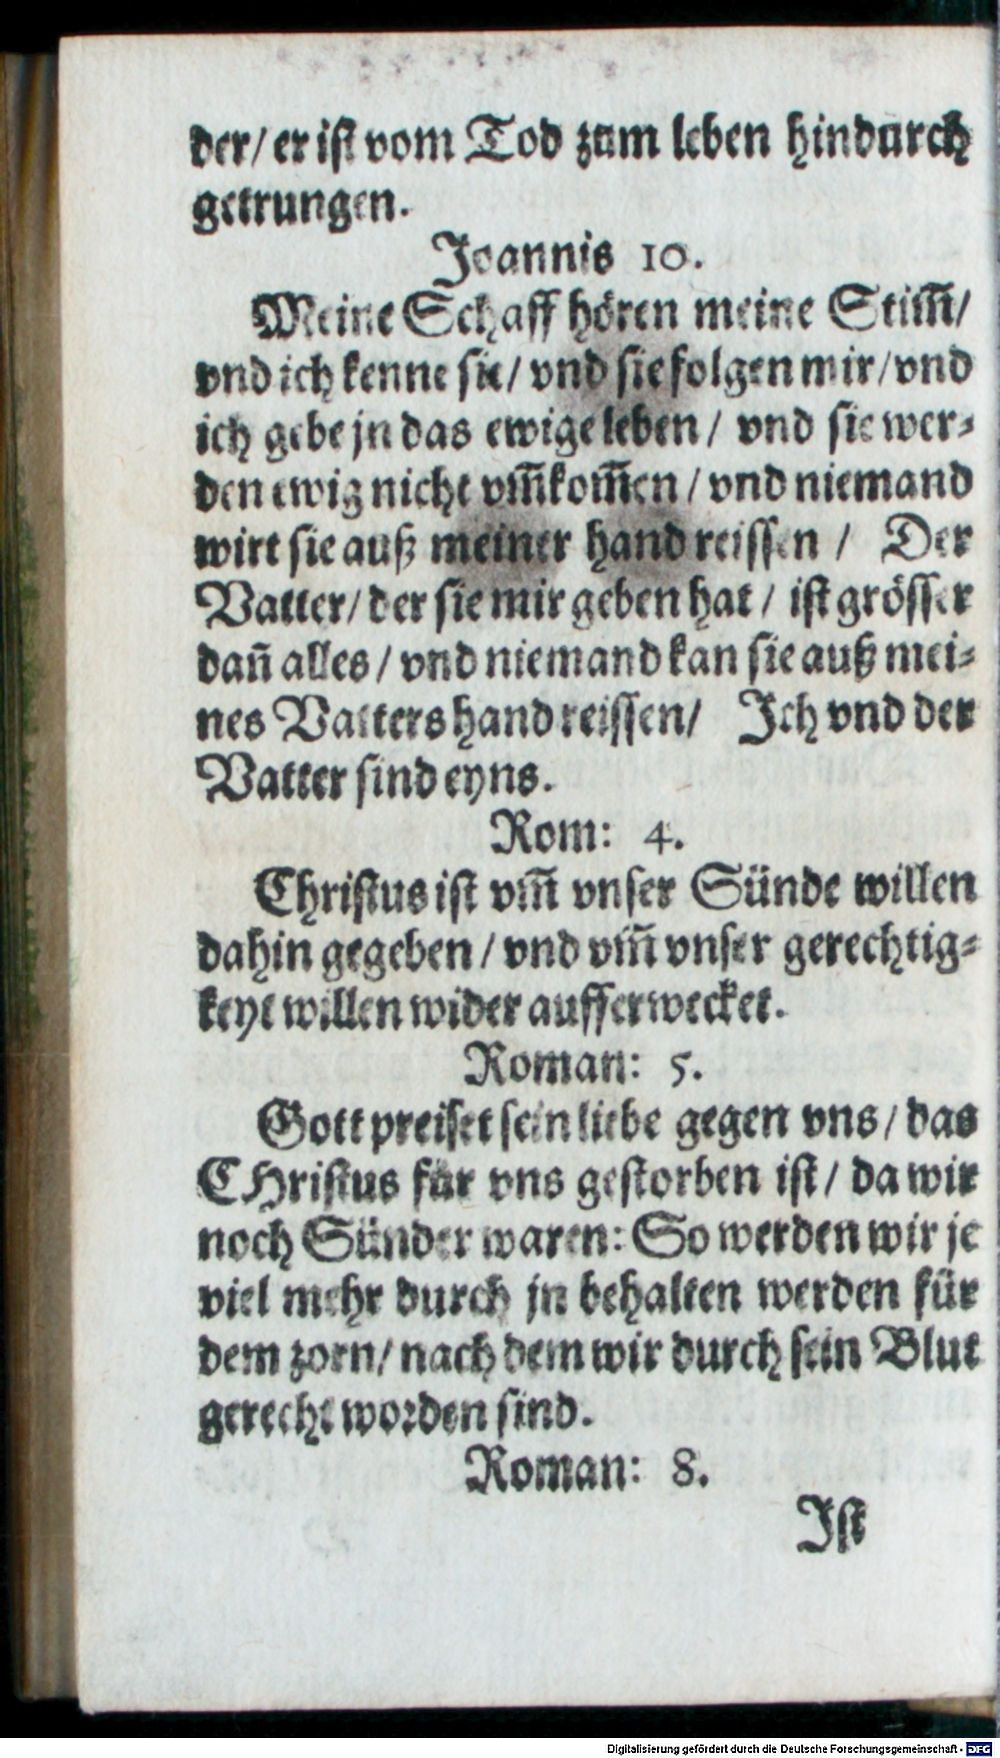 der/ er ist vom Tod zum leben hindurch
getrungen.
Joannis 10.
Meine Schaff hören meine Stim̃/
vnd ich kenne sie/ vnd sie folgen mir/ vnd
ich gebe jn das ewige leben/ vnd sie wer⸗
den ewig nicht vm̃kom̃en/ vnd niemand
wirt sie auß meiner hand reissen/ Der
Vatter/ der sie mir geben hat/ ist grösser
dañ alles/ vnd niemand kan sie auß mei⸗
nes Vatters hand reissen/ Ich vnd der
Vatter sind eyns.
Rom: 4.
Christus ist vm̃ vnser Sünde willen
dahin gegeben/ vnd vm̃ vnser gerechtig⸗
keyt willen wider aufferwecket.
Roman: 5.
Gott preiset sein liebe gegen vns/ das
CHristus für vns gestorben ist/ da wir
noch Sünder waren: So werden wir je
viel mehr durch jn behalten werden für
dem zorn/ nach dem wir durch sein Blut
gerecht worden sind.
Roman: 8.
Ist
Digitalisierung gefördert durch die Deutsche Forschungsgemeinschaft - DFG